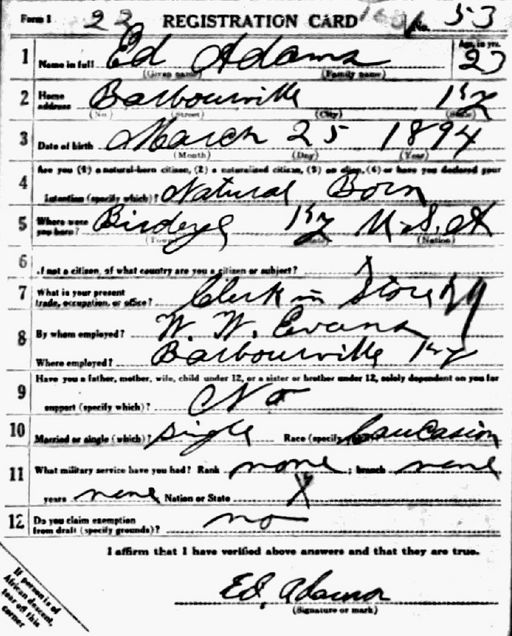 Form 1 22 REGISTRATION CARD No. 53
1 Name in full Ed Adams Age, in yrs. 23
(Given name) (Family name)
2 Home address Barbourville Ky
(No.) (Street) (City) (State)
3 Date of birth March 25 1894
(Month) (Day) (Year)
4 Are you (1) a natural-born citizen, (2) a naturalized citizen, (3) an alien, (4) or have you declared your
intention (specify which)? Natural Born
5 Where were you born? Birdeye Ky U.S.A
(Town) (State) (Nation)
6 If not a citizen, of what country are you a citizen or subject? X
7 What is your present trade, occupation, or office? Clerk in Store
8 By whom employed? W. W. Evans
Where employed? Barbourville Ky
9 Have you a father, mother, wife, child under 12, or a sister or brother under 12, solely dependent on you for
support (specify which)? No
10 Married or single (which)? Single Race (specify which)? Caucasion
11 What military service have you had? Rank none ; branch none
years none Nation or State X
12 Do you claim exemption from draft (specify grounds)? no
I affirm that I have verified above answers and that they are true.
Ed, Adams
(Signature or mark)
If person is of
African descent,
tear off this
corner